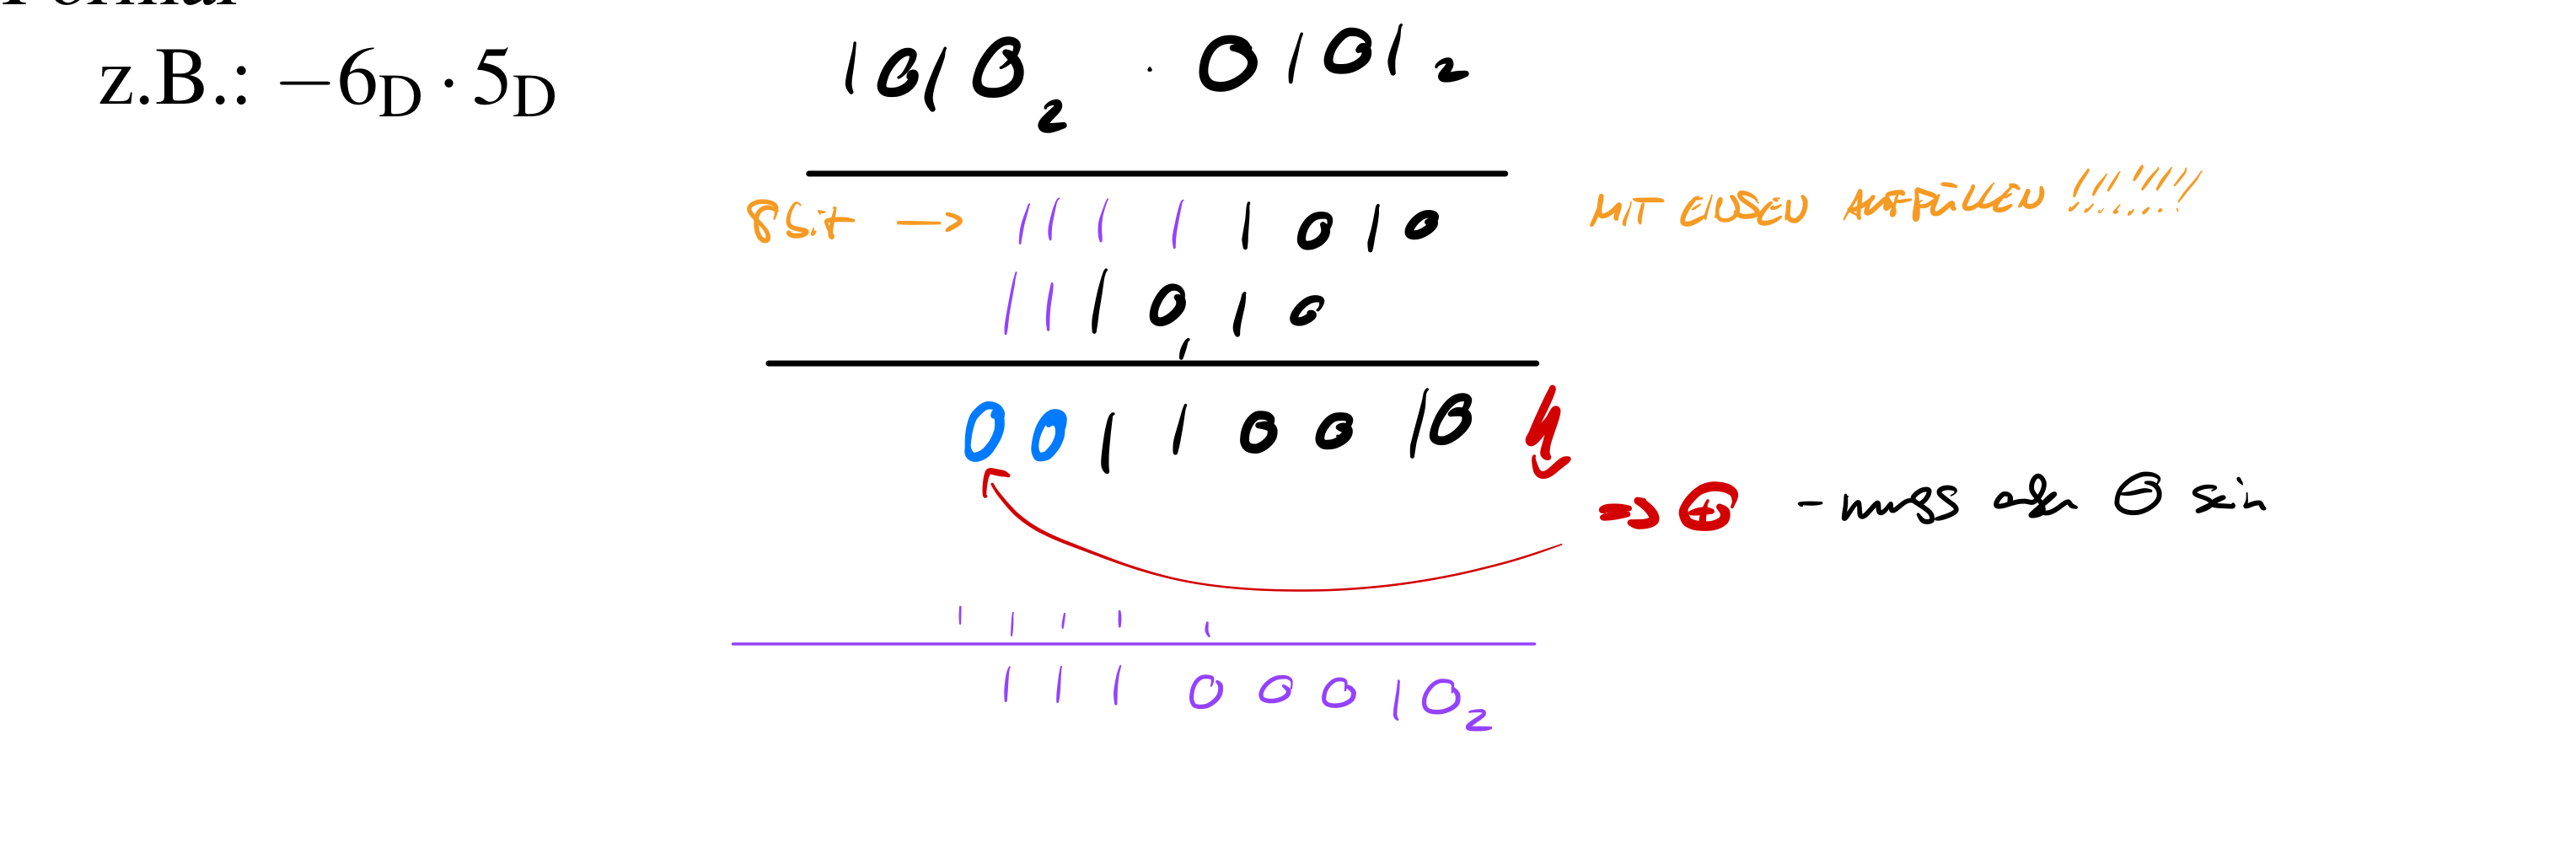 z.B.: −6D · 5D 1010₂ · 0101₂
8bit → 1 1 1 1 1 0 1 0 MIT EINSEN AUFFÜLLEN !!!!!!!!
1 1 1 0 1 0
1
0 0 1 1 0 0 1 0
⇒ ⊕ - muss aber ⊖ sein
1 1 1 1 1
1 1 1 0 0 0 1 0₂